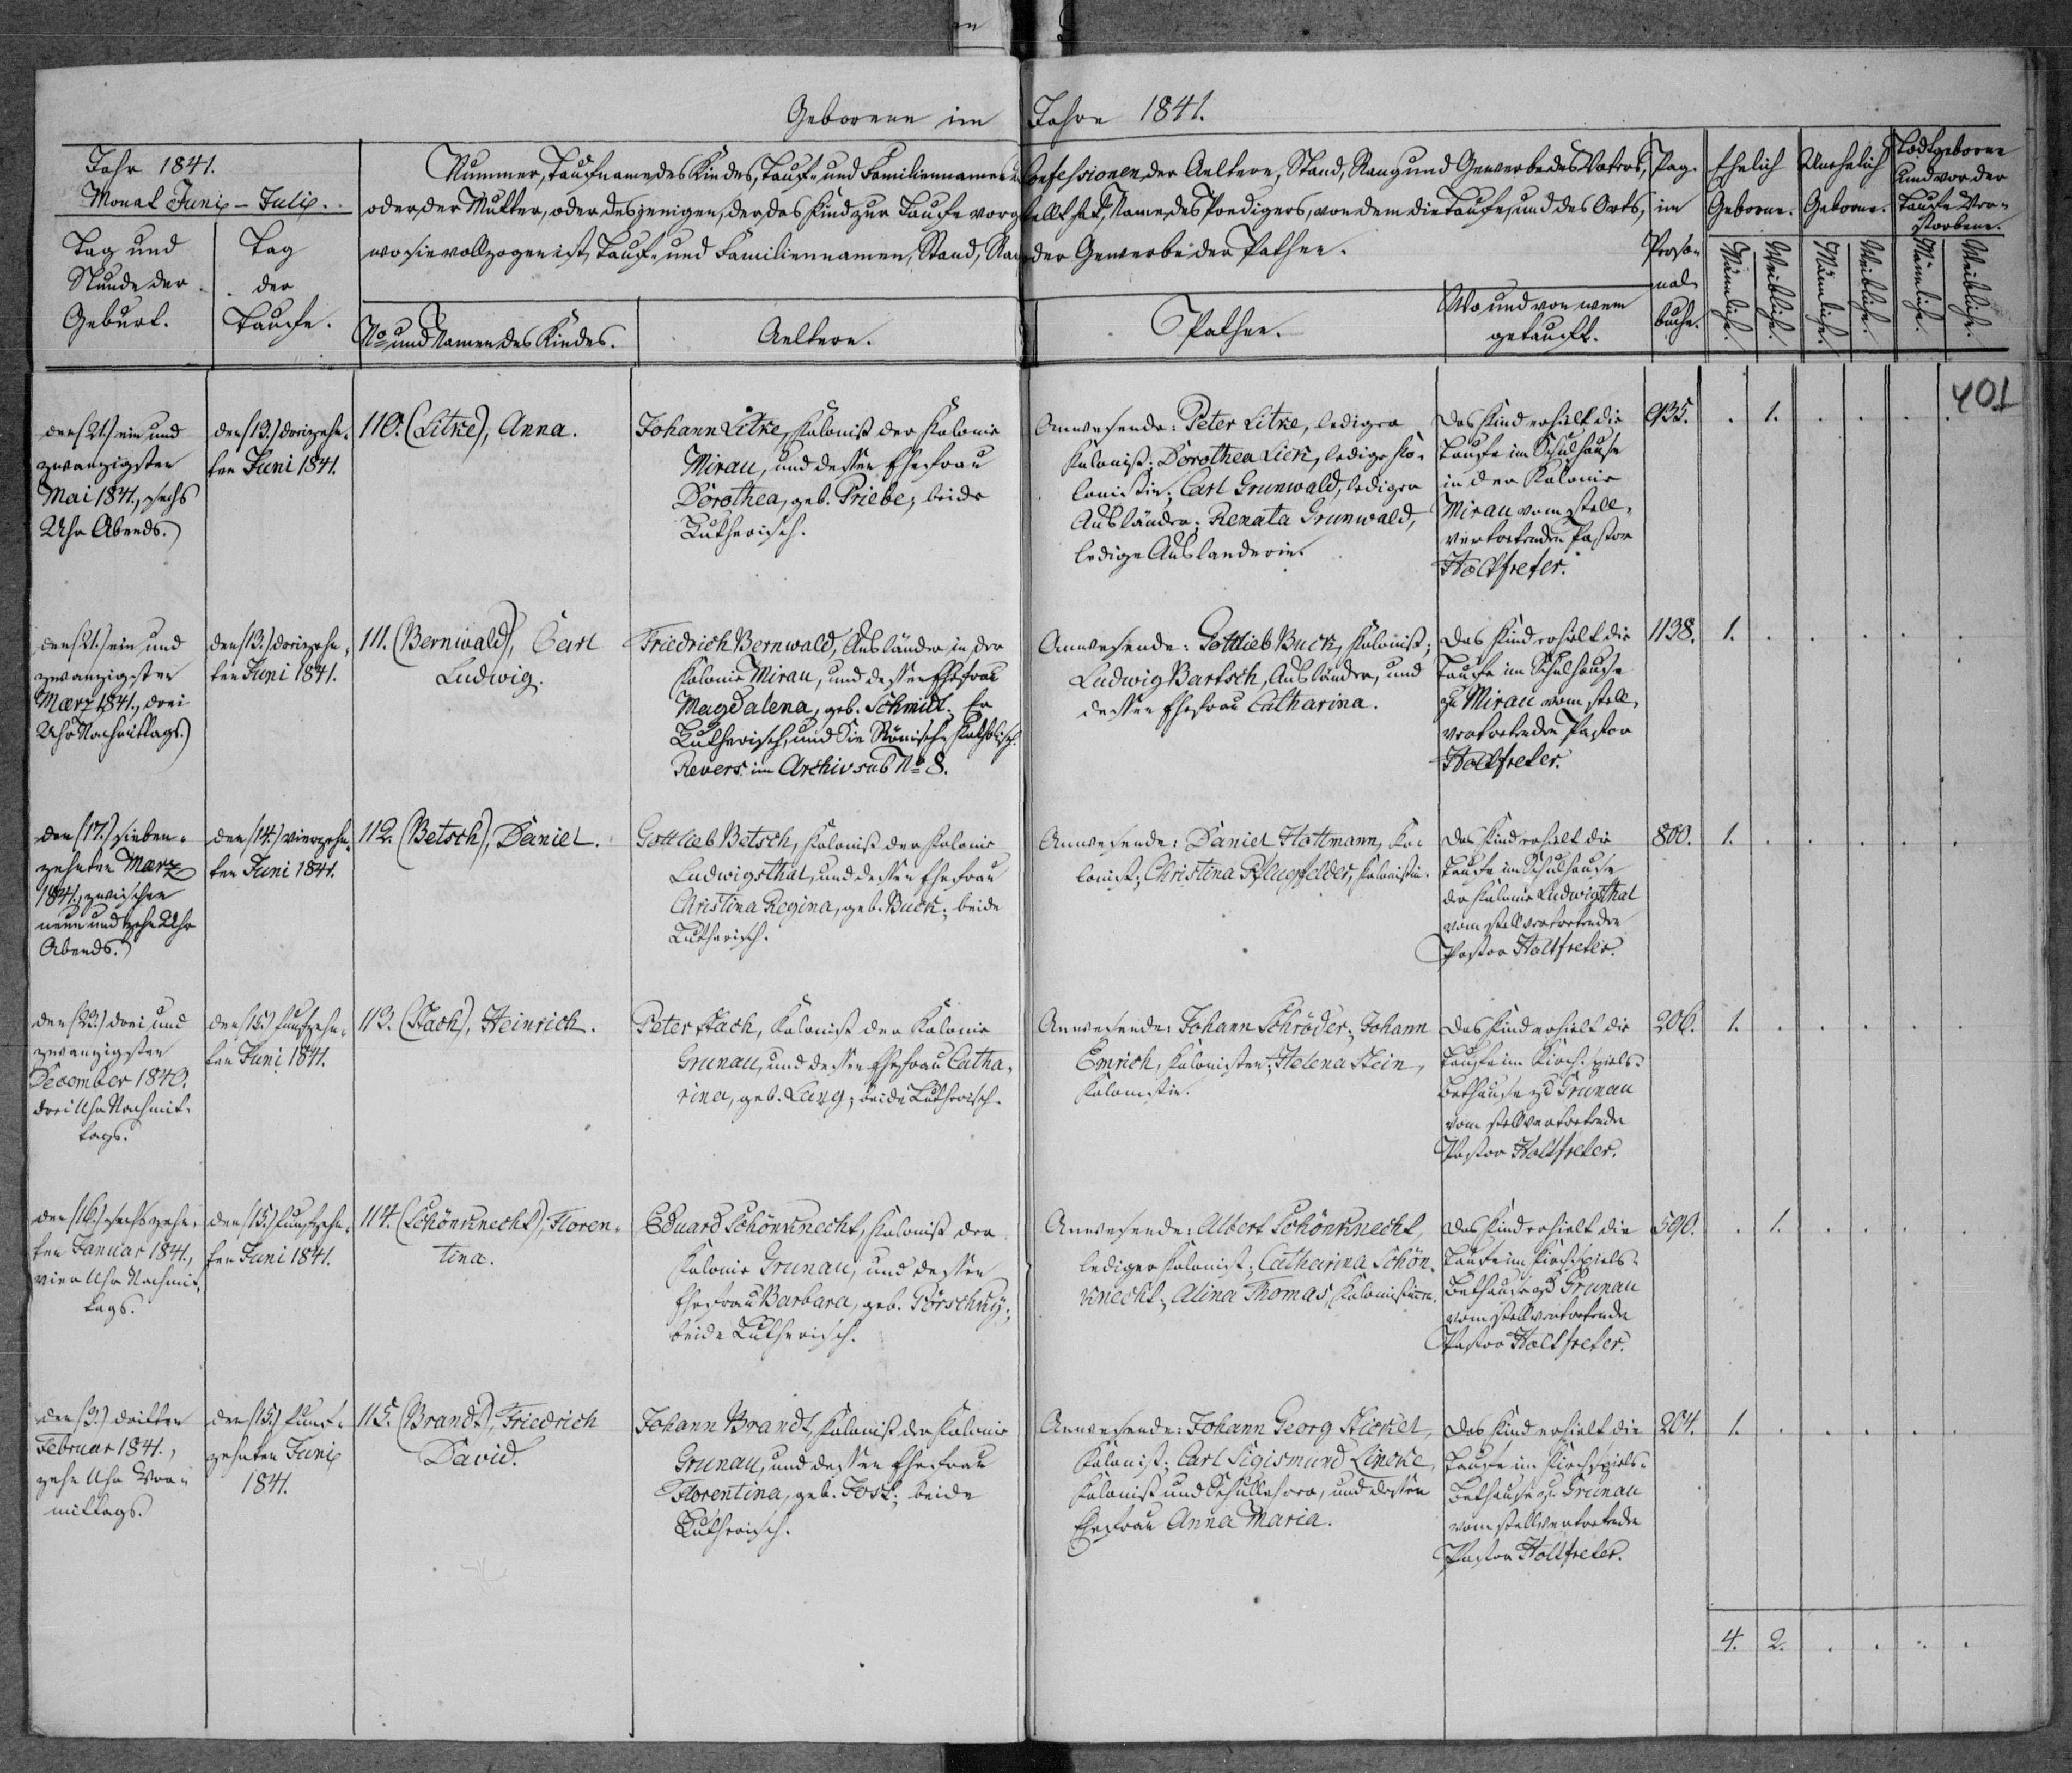 Geborene im Jahre 1841.
Jahr 1841.
Monat Juni - Juli.
Tag und
Stunde der
Geburt.
Tag
der
Taufe.
Nummer, Taufname des Kindes, Tauf- und Familiennamen u. Confessionen der Aeltern, Stand, Rang und Gewerbe des Vaters,
oder der Mutter, oder desjenigen, der das Kind zur Taufe vorgestellt hat, Name des Predigers, von dem die Taufe, und des Orts,
wo sie vollzogen ist, Tauf- und Familiennamen, Stand, Rang oder Gewerbe der Pathen.
No und Namen des Kindes.
Aeltern.
Pathen.
Wo und von wem
getauft.
Pag.
im
Perso-
nal-
buche.
Ehelich
Geborne.
Unehelich
Geborne.
Todtgeborne
und vor der
Taufe Ver-
storbene.
Männliche.
Weibliche.
Männliche.
Weibliche.
Männliche.
Weibliche.
401
den (21.) ein und
zwanzigsten
Mai 1841., sechs
Uhr Abends.
den (13.) dreizehn-
ten Juni 1841.
110. (Litke), Anna.
Johann Litke, Kolonist der Kolonie
Mirau, und dessen Ehefrau
Dorothea, geb. Priebe; beide
Lutherisch.
Anwesende: Peter Litke, lediger
Kolonist; Dorothea Lick, ledige Ko-
lonistin; Carl Grunwald, lediger
Ausländer; Renata Grunwald,
ledige Ausländerin.
Das Kind erhielt die
Taufe im Schulhause
in der Kolonie
Mirau vom stell-
vertretenden Pastor
Holtfreter.
935. . 1. . . . .
den (21.) ein und
zwanzigsten
März 1841., drei
Uhr Nachmittags.
den (13.) dreizehn-
ten Juni 1841.
111. (Bernwald), Carl
Ludwig.
Friedrich Bernwald, Ausländer in der
Kolonie Mirau, und dessen Ehefrau
Magdalena, geb. Schmidt. Er
Lutherisch, und Sie Römisch-Katholisch.
Revers im Archiv sub No 8.
Anwesende: Gottlieb Buck, Kolonist;
Ludwig Bartsch, Ausländer, und
dessen Ehefrau Catharina.
Das Kind erhielt die
Taufe im Schulhause
zu Mirau vom stell-
vertretenden Pastor
Holtfreter.
1138. 1. . . . . .
den (17.) sieben-
zehnten März
1841., zwischen
neun und zehn Uhr
Abends.
den (14.) vierzehn-
ten Juni 1841.
112. (Betsch), Daniel.
Gottlieb Betsch, Kolonist der Kolonie
Ludwigsthal, und dessen Ehefrau
Christina Regina, geb. Buck; beide
Lutherisch.
Anwesende: Daniel Hottmann, Ko-
lonist; Christina Pflugfelder, Kolonistin.
Das Kind erhielt die
Taufe im Schulhause
der Kolonie Ludwigsthal
vom stellvertretenden
Pastor Holtfreter.
800. 1. . . . . .
den (23.) drei und
zwanzigsten
December 1840.
drei Uhr Nachmit-
tags.
den (15.) funfzehn-
ten Juni 1841.
113. (Stach), Heinrich.
Peter Stach, Kolonist der Kolonie
Grunau, und dessen Ehefrau Catha-
rina, geb. Lang; beide Lutherisch.
Anwesende: Johann Schröder; Johann
Emrich, Kolonisten; Helena Stein,
Kolonistin.
Das Kind erhielt die
Taufe im Kirchspiels-
Bethause zu Grunau
vom stellvertretenden
Pastor Holtfreter.
206. 1. . . . . .
den (16.) sechszehn-
ten Januar 1841.,
vier Uhr Nachmit-
tags.
den (15.) funfzehn-
ten Juni 1841.
114. (Schönknecht), Floren-
tina.
Eduard Schönknecht, Kolonist der
Kolonie Grunau, und dessen
Ehefrau Barbara, geb.
beide Lutherisch.
Anwesende: Albert Schönknecht,
lediger Kolonist; Catharina Schön-
knecht; Alina Thomas, Kolonistinnen.
Das Kind erhielt die
Taufe im Kirchspiels-
Bethause zu Grunau
vom stellvertretenden
Pastor Holtfreter.
590. . 1. . . . .
den (3.) dritten
Februar 1841.,
zehn Uhr Vor-
mittags.
den (15.) funf-
zehnten Juni
1841.
115. (Brandt), Friedrich
David.
Johann Brandt, Kolonist der Kolonie
Grunau, und dessen Ehefrau
Florentina, geb. Jost; beide
Lutherisch.
Anwesende: Johann Georg Stickel,
Kolonist; Carl Sigismund Lineke,
Kolonist und Schullehrer, und dessen
Ehefrau Anna Maria.
Das Kind erhielt die
Taufe im Kirchspiels-
Bethause zu Grunau
vom stellvertretenden
Pastor Holtfreter.
204. 1. . . . . .
4. 2. . . . .